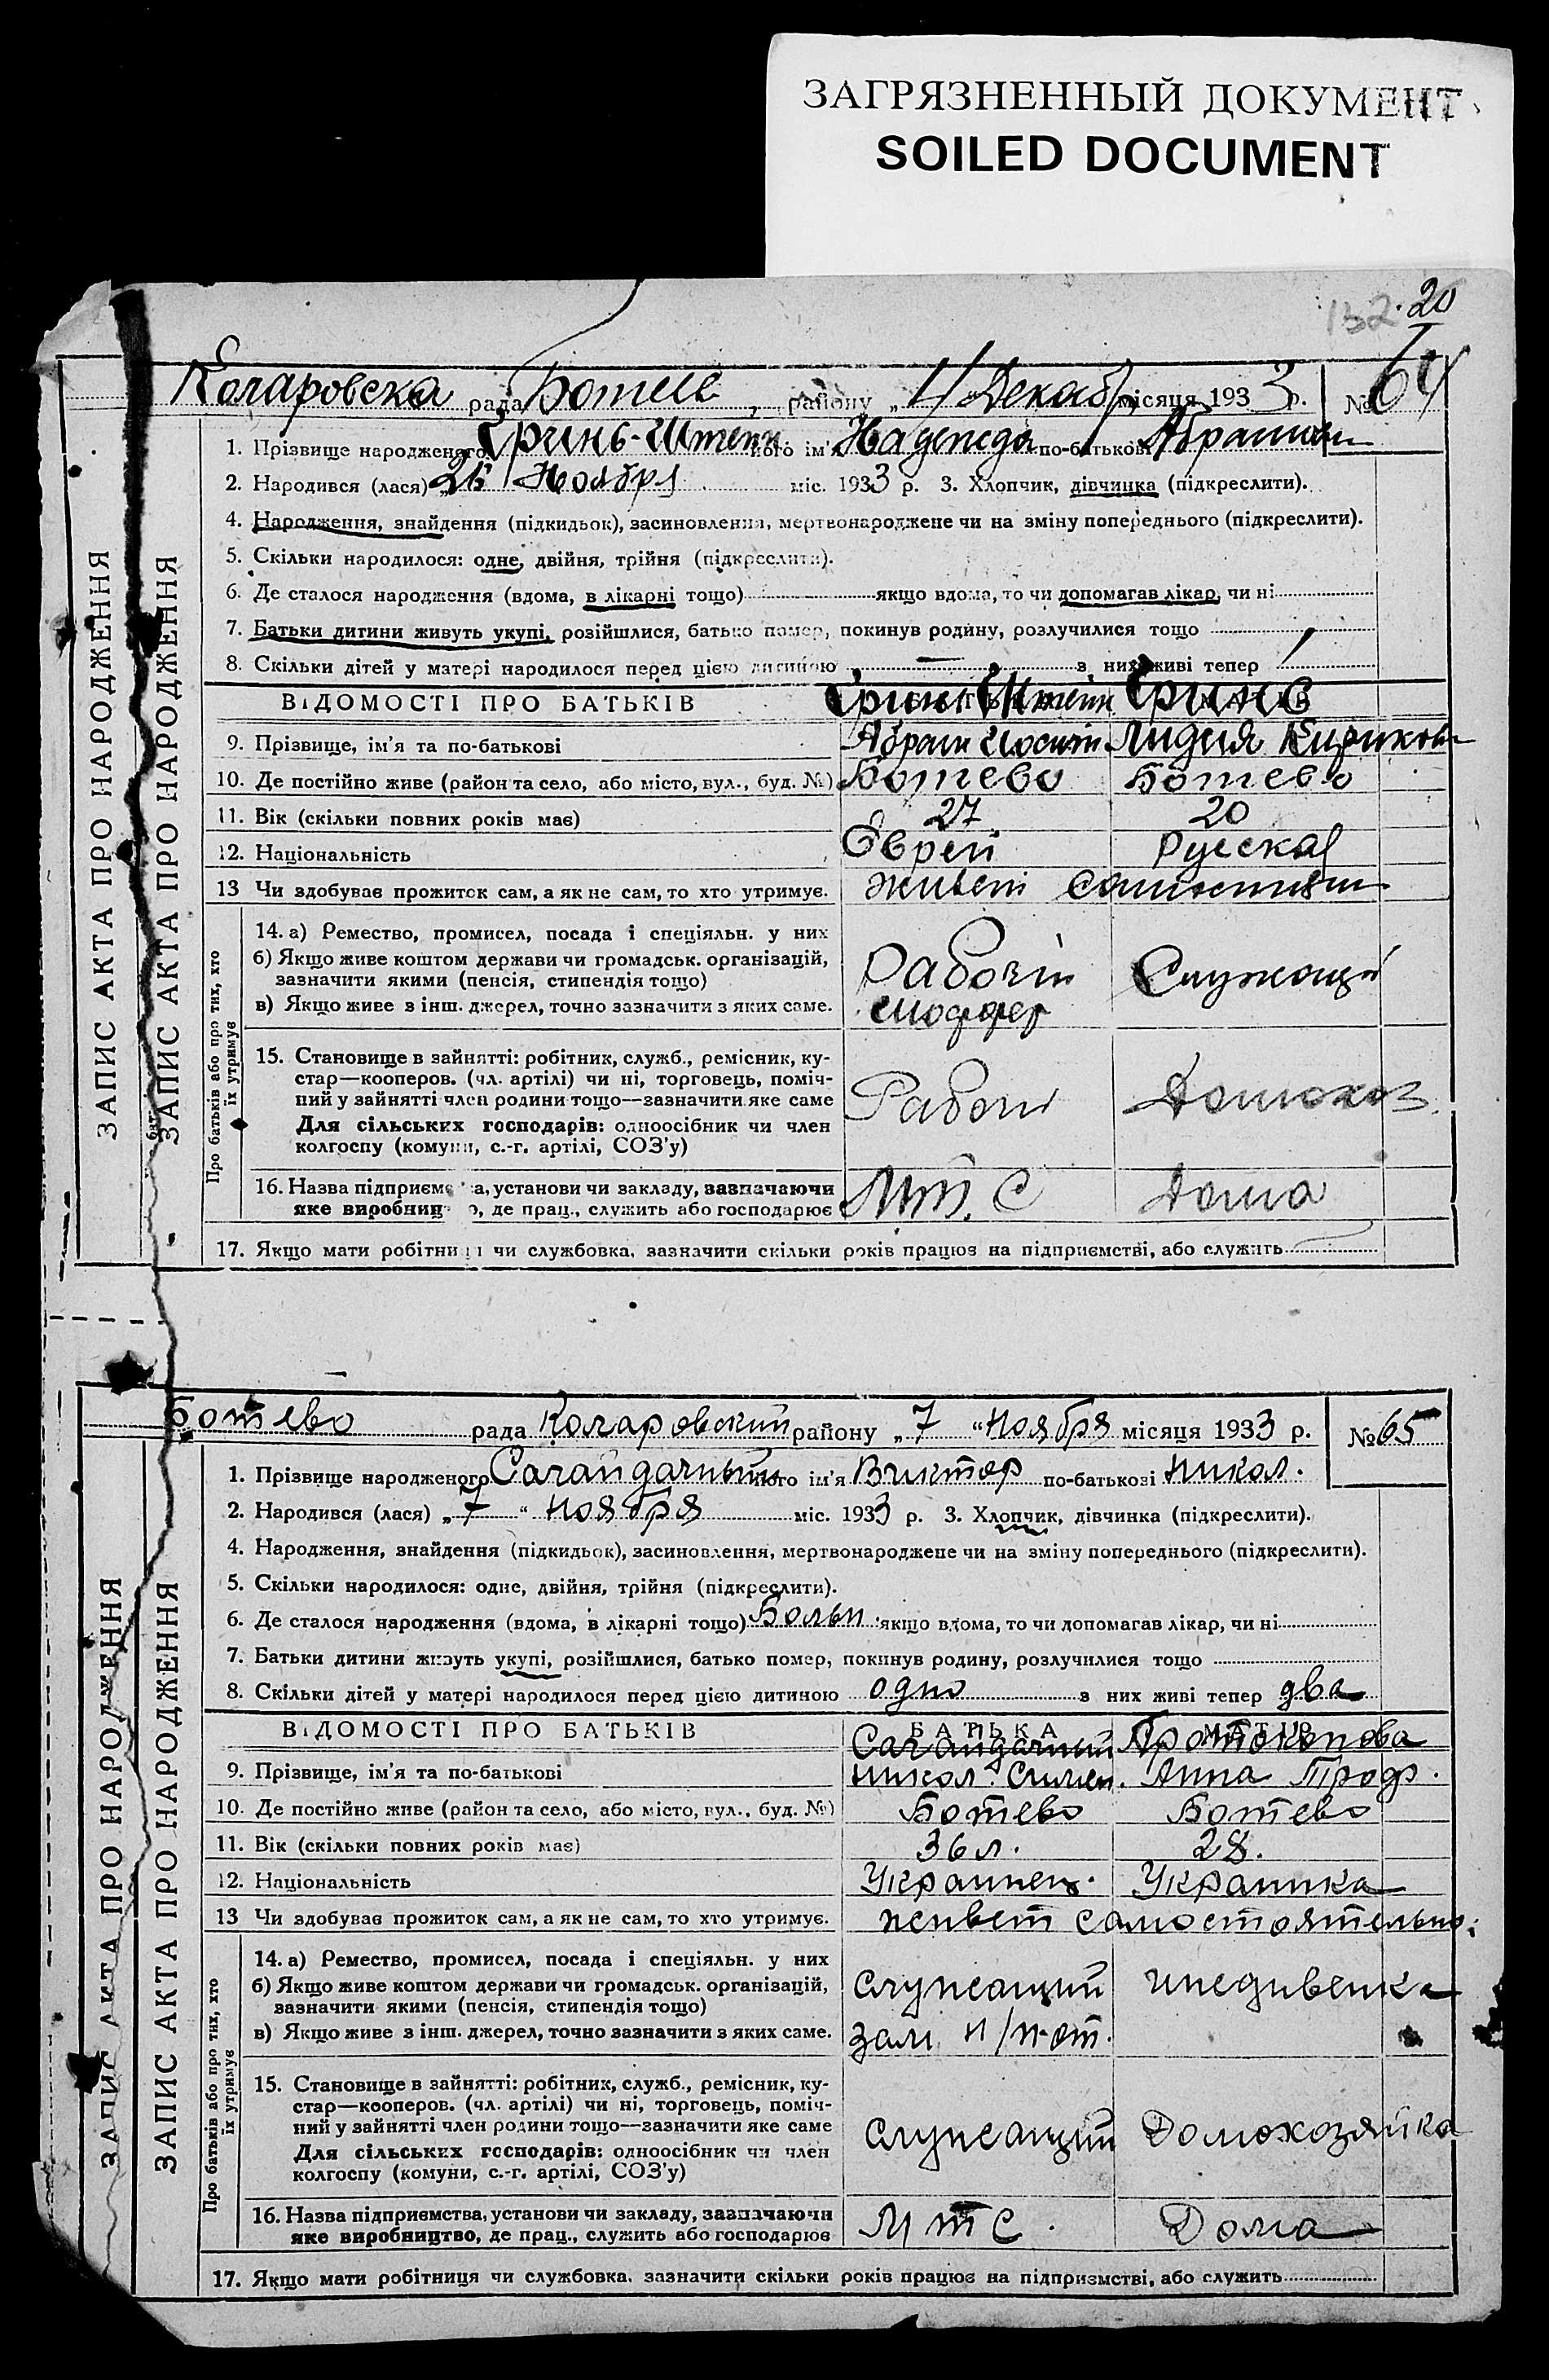 ЗАГРЯЗНЕННЫЙ ДОКУМЕНТ
SOILED DOCUMENT
132. 20
Коларовска рада Ботие, району „4 Декабр місяця 1933 р. № 64
1. Прізвище народженого Гринь-Штейн його ім'я Надежда по-батькові Абрамовн
2. Народився (лася) „26 Ноября міс. 1933 р. 3. Хлопчик, дівчинка (підкреслити).
4. Народження, знайдення (підкидьок), засиновлення, мертвонароджене чи на зміну попереднього (підкреслити).
5. Скільки народилося: одне, двійня, трійня (підкреслити).
6. Де сталося народження (вдома, в лікарні тощо) якщо вдома, то чи допомагав лікар, чи ні
7. Батьки дитини живуть укупі, розійшлися, батько помер, покинув родину, розлучилися тощо
8. Скільки дітей у матері народилося перед цією дитиною — з них живі тепер /
ВІДОМОСТІ ПРО БАТЬКІВ Гринь Штейн Гринь
9. Прізвище, ім'я та по-батькові Абрам Иосип. Лидия Кирилов
10. Де постійно живе (район та село, або місто, вул., буд. №) Ботево Ботево
11. Вік (скільки повних років має) 27 20
12. Національність Еврей Русская
13 Чи здобуває прожиток сам, а як не сам, то хто утримує. живет
14. а) Ремество, промисел, посада і спеціяльн. у них
б) Якщо живе коштом держави чи громадськ. організацій,
зазначити якими (пенсія, стипендія тощо) Рабочий Служащий
в) Якщо живе з інш. джерел, точно зазначити з яких саме. шоффер
Про батьків або про тих, хто їх утримує
15. Становище в зайнятті: робітник, служб., ремісник, ку-
стар—кооперов. (чл. артілі) чи ні, торговець, поміч-
ний у зайнятті член родини тощо—зазначити яке саме Рабочи Домохоз.
Для сільських господарів: одноосібник чи член
колгоспу (комуни, с.-г. артілі, СОЗ'у)
16. Назва підприємства, установи чи закладу, зазначаючи
яке виробництво, де прац., служить або господарює М.Т.С Дома
17. Якщо мати робітниця чи службовка, зазначити скільки років працює на підприємстві, або служить
ЗАПИС АКТА ПРО НАРОДЖЕННЯ
ЗАПИС АКТА ПРО НАРОДЖЕННЯ
Ботево рада Коларовский району „7 “ Ноября місяця 1933 р. № 65
1. Прізвище народженого Сагайдачный його ім'я Виктор по-батькові Никол.
2. Народився (лася) „7 “ ноября міс. 1933 р. 3. Хлопчик, дівчинка (підкреслити).
4. Народження, знайдення (підкидьок), засиновлення, мертвонароджене чи на зміну попереднього (підкреслити).
5. Скільки народилося: одне, двійня, трійня (підкреслити).
6. Де сталося народження (вдома, в лікарні тощо) Больн якщо вдома, то чи допомагав лікар, чи ні
7. Батьки дитини живуть укупі, розійшлися, батько помер, покинув родину, розлучилися тощо
8. Скільки дітей у матері народилося перед цією дитиною одно з них живі тепер два
ВІДОМОСТІ ПРО БАТЬКІВ БАТЬКА МАТІР
Сагайдачный Протоконова
9. Прізвище, ім'я та по-батькові Никол. Симен. Анна Троф.
10. Де постійно живе (район та село, або місто, вул., буд. №) Ботево Ботево
11. Вік (скільки повних років має) 36 л. 28.
12. Національність Украинец. Украинка
13 Чи здобуває прожиток сам, а як не сам, то хто утримує. живет самостоятельно.
14. а) Ремество, промисел, посада і спеціяльн. у них
б) Якщо живе коштом держави чи громадськ. організацій, служащий иждивенка
зазначити якими (пенсія, стипендія тощо)
в) Якщо живе з інш. джерел, точно зазначити з яких саме. зам. н/п-от.
Про батьків або про тих, хто їх утримує
15. Становище в зайнятті: робітник, служб., ремісник, ку-
стар—кооперов. (чл. артілі) чи ні, торговець, поміч-
ний у зайнятті член родини тощо—зазначити яке саме служащий Домохозяйка
Для сільських господарів: одноосібник чи член
колгоспу (комуни, с.-г. артілі, СОЗ'у)
16. Назва підприємства, установи чи закладу, зазначаючи
яке виробництво, де прац., служить або господарює МТС. Дома
17. Якщо мати робітниця чи службовка, зазначити скільки років працює на підприємстві, або служить
ЗАПИС АКТА ПРО НАРОДЖЕННЯ
ЗАПИС АКТА ПРО НАРОДЖЕННЯ